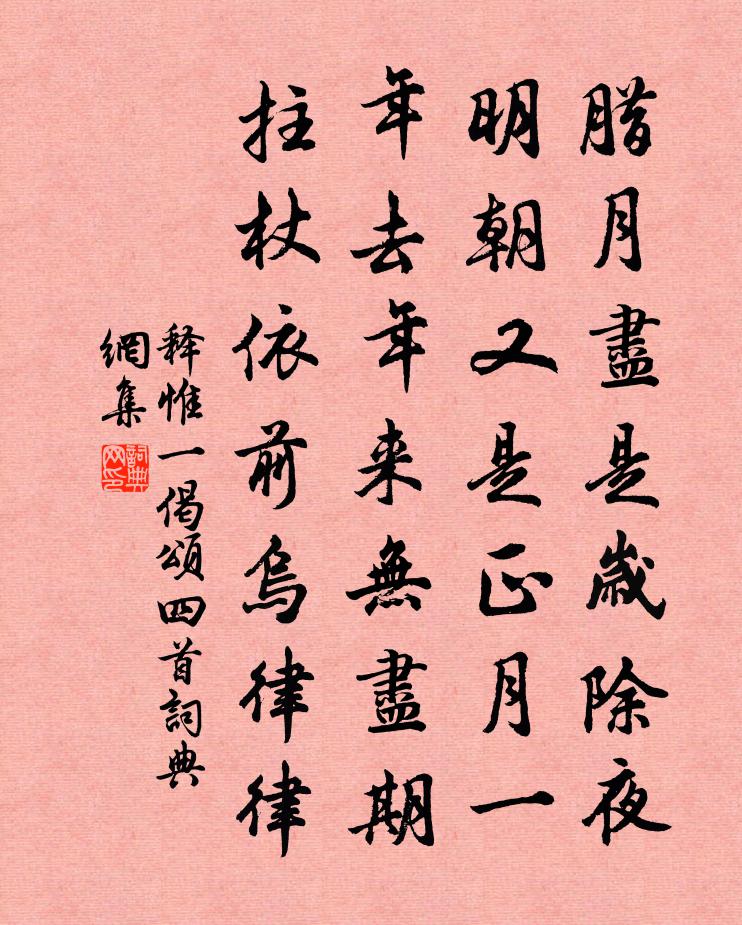 腊月盡是歲除夜
明朝又是正月一
年去年来無盡期
拄杖依前烏律律
释惟一偈頌四首詞典
網集
詞典
网印